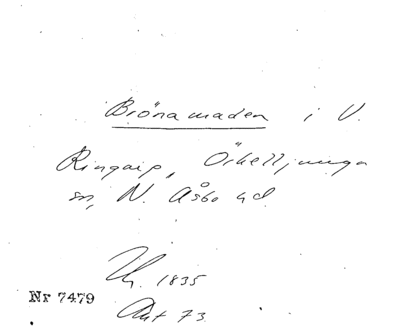 Brönamaden i V.
Ringarp, Örkelljunga
sn, N. Åsbo hd
Nr 7479
1835
Akt 73